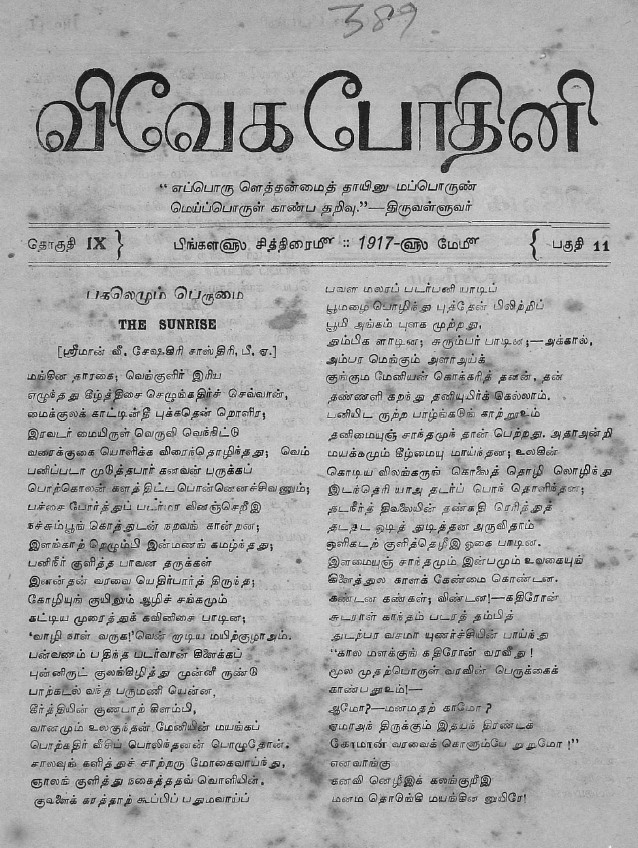 389
விவேக போதினி
“ எப்பொரு ளெத்தன்மைத் தாயினு மப்பொருண்
மெய்ப்பொருள் காண்ப தறிவு.”—திருவள்ளுவர்
தொகுதி IX } பிங்கள௵ சித்திரைமீ :: 1917-௵ மேமீ { பகுதி 11
பகலெழும் பெருமை
THE SUNRISE
[ஸ்ரீமான் வீ. சேஷகிரி சாஸ்திரி, பீ. ஏ.]
மங்கின தாரகை; வெங்குளிர் இரிய
எழுந்தது கீழ்த்திசை செழுங்கதிர்ச் செவ்வான்,
மைக்குலக் காட்டின்தீ புக்கதென் றொளிர;
இரவடர் மையிருள் வெருவி வெங்கிட்டு
வரைக்குகை யொளிக்க விரைந்தொழிந்தது; வெம்
பனிப்படா முடுத்தபார் கனவன் புருக்கப்
பொற்கொலன் களத் திட்ட பொன்னெனச்சிவணும்;
பச்சை போர்த்துப் படர்மா விளஞ்செறீஇ
நச்சும்பூங் கொத்துடன் நறவங் கான்றன;
இளங்காற் றெழும்பி இன்மணங் கமழ்ந்தது;
பனிநீர் குளித்த பாவன தருக்கள்
இனன்தன் வரவை யெதிர்பார்த் திருந்த;
கோழியுங் குயிலும் ஆழிச் சங்கமும்
கட்டிய முரைத்துக் கவினிசை பாடின;
‘வாழி நாள் வருக!’வென் றாடிய மயிற்குழாஅம்.
பன்வணம் பதிந்த படர்வான் கிளைக்கப்
புன்னிருட் குலங்கிழித்து முன்னீ ருண்டு
பாற்கடல் வந்த பருமணி யென்ன,
கீர்த்தியின் குணபாற் கிளம்பி,
வானமும் உலகுந்தன் மேனியின் மயங்கப்
பொற்கதிர் வீசிப் பொலிந்தனன் பொழுதோன்.
சாலவுங் களித்துச் சாற்றரு மோகைவாய்ந்து,
ஞாலங் குளித்து நகைத்ததவ் வொளியின்.
குவளைக் கரத்தாற் கூப்பிப் பதுமவாய்ப்
பவள மலரப் படர்பனி யாடிப்
பூமழை பொழிந்து புத்தேன் பிலிற்றிப்
பூமி அங்கம் புளக முற்றது,
தும்பிக ளாடின; சுரும்பர் பாடின;—அக்கால்,
அம்பர மெங்கும் அளாஅய்க்
குங்கும மேனியன் கொக்கரித் தனன், தன்
தண்ணளி கறந்து தனியுயிர்க் கெல்லாம்.
பனியிட ருற்ற பாழ்ங்கடுங் காற்றூஉம்
தனிமையுஞ் சாந்தமுந் தான் பெற்றது. அதாஅன்றி
மயக்கமும் கீழ்மையு மாய்ந்தன; உலகின்
கொடிய விலங்கருங் கொலைத் தொழி லொழிந்து
இடந்தெரி யாஅ தடர்ப் பொந் தொளிந்தன;
தடநீர்த் திவலையின் தண்கதி ரெரித்துத்
தடதட ஒடித் துடித்தன அருவிதாம்
ஒளிகடற் குளித்தெழீஇ ஓகை பாடின.
இனமையஞ் சாந்தமும் இன்பமும் உவகையுங்
கிளைத்துல காளக் கேண்மை கொண்டன.
கண்டன கண்கள்; விண்டன!—கதிரோன்
சுடராள் காந்தம் படரத் தம்பித்
துடற்பர வசமா யுணர்ச்சியின் பாய்ந்து
“கால மளக்குங் கதிரோன் வரவீது!
மூல முதற்பொருள் வரவின் பெருக்கைக்
காண்பதூஉம்!—
ஆமோ?—மனமதற் காமோ?
ஏமாஅந் திருக்கும் இதயந் திரண்டக்
கோமான் வரவைக் கொளும்பே றுறுமோ!”
எனவாங்கு
கனவி னெழீஇக் கலங்குறீஇ
மனம தொடுங்கி மயங்கின னுயிரே!